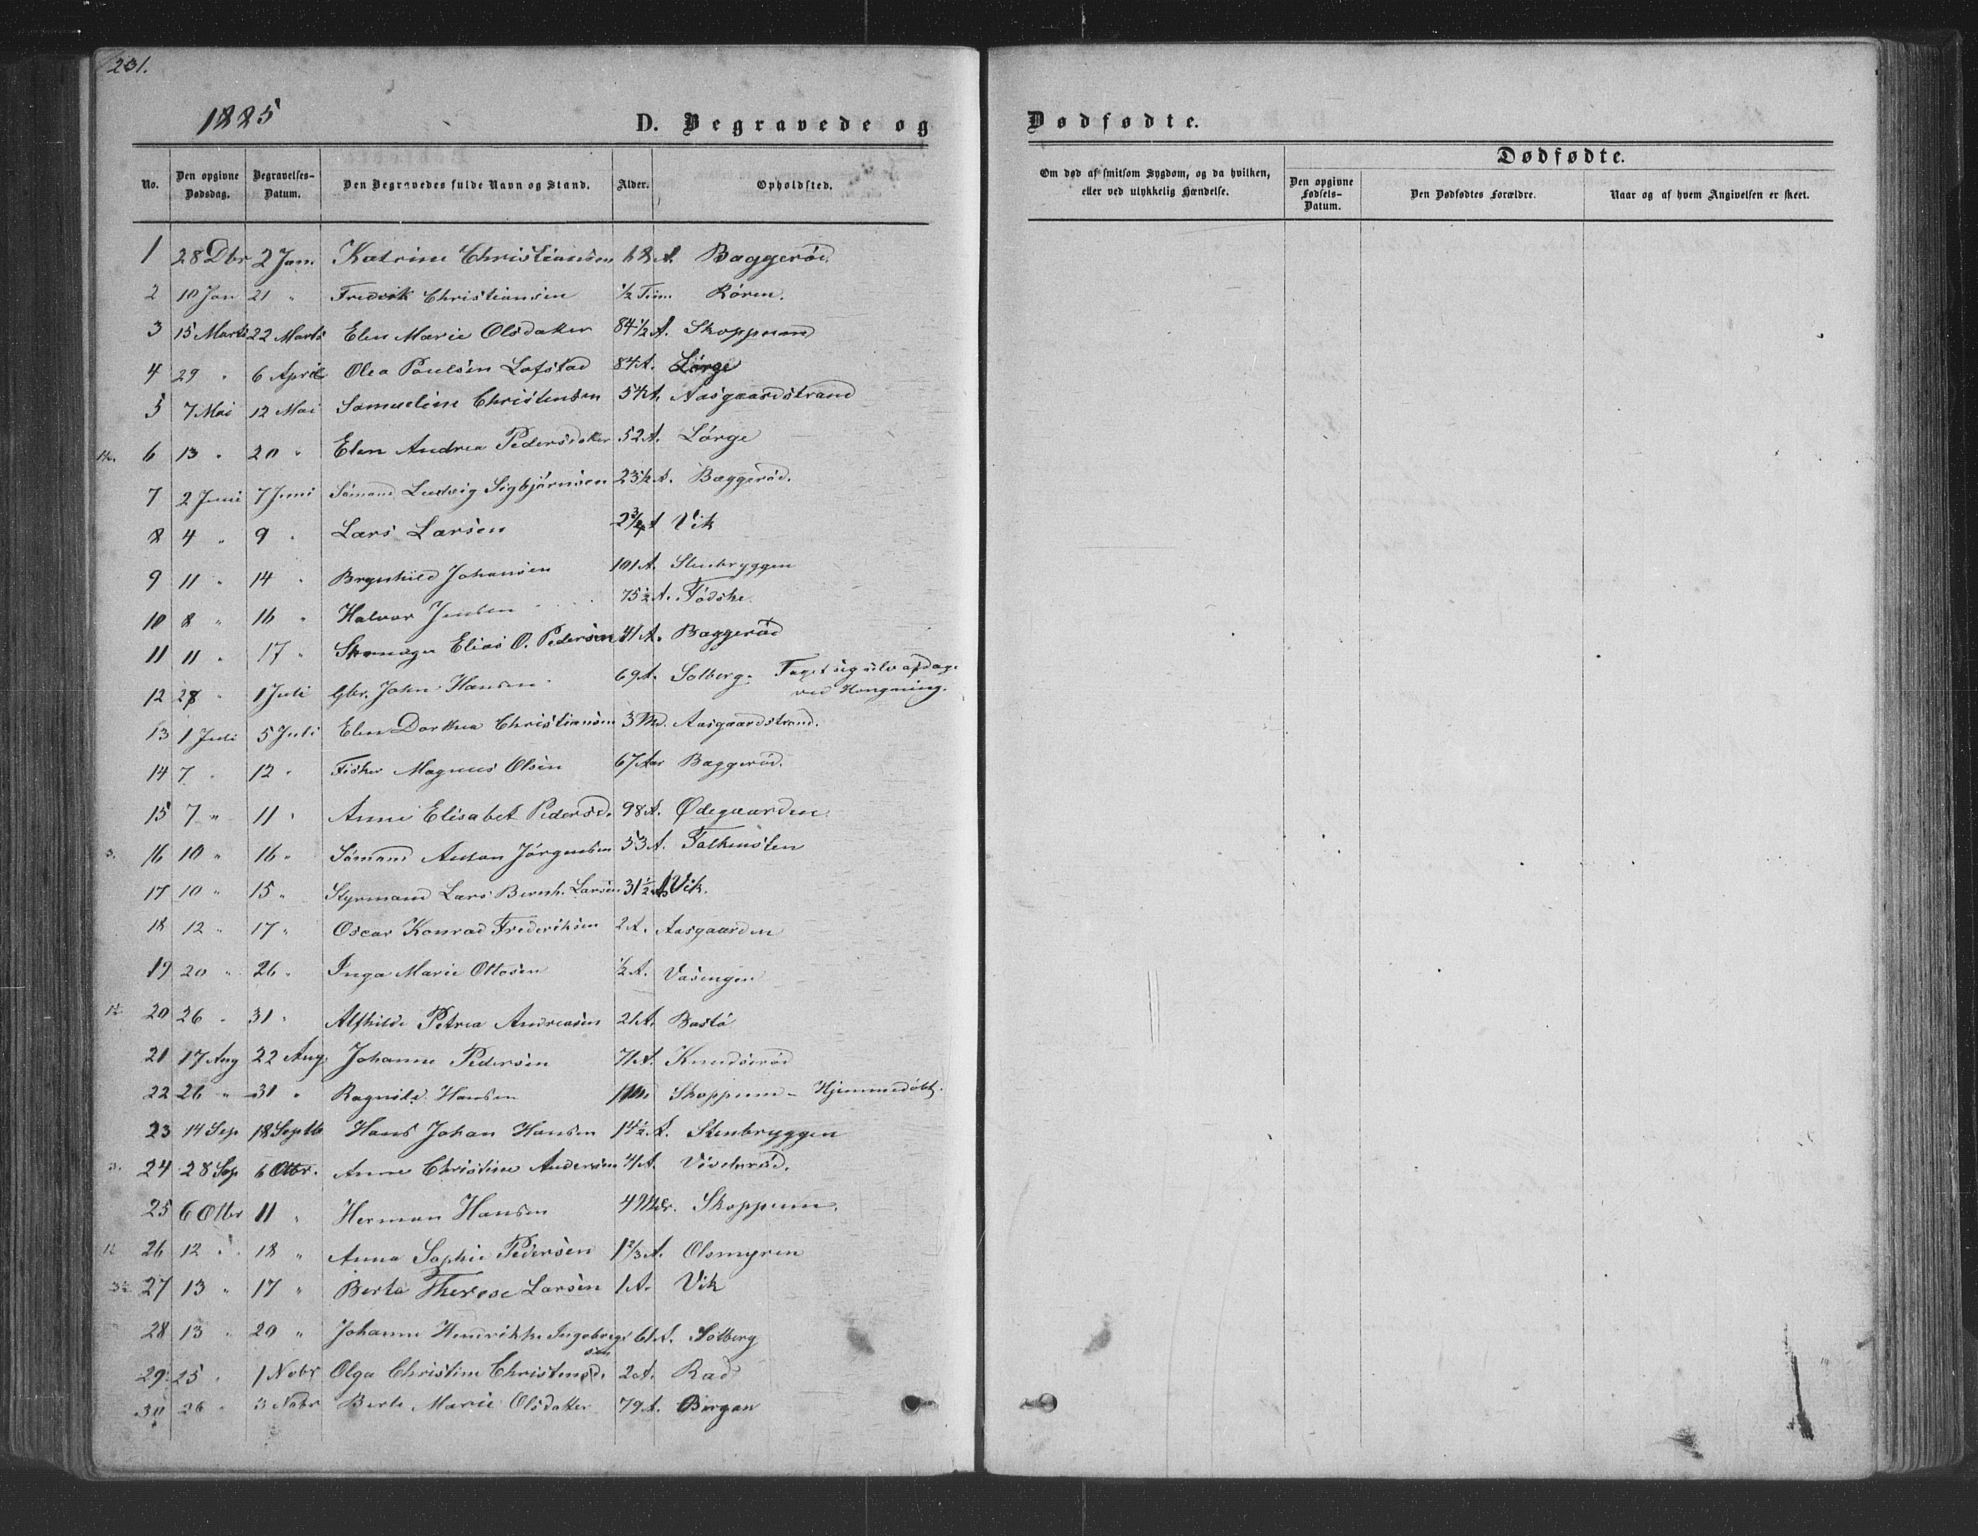 231.
1885
D. Begravede og Dødfødte.
No. Den opgivne Dødsdag. Begravelses-Datum. Den Begravedes fulde Navn og Stand. Alder. Opholdsted.
Om død af smitsom Sygdom, og da hvilken, eller ved ulykkelig Hændelse.
Dødfødte.
Den opgivne Fødsels-Datum. Den Dødfødtes Forældre. Naar og af hvem Angivelsen er skeet.
1 28 Dbr 2 Jan. Katrine Christiansen A. Baggerød.
2 10 Jan 21 " Fredrik Christiansen 1/2 Tim. Røren.
3 15 Marts 22 Marts Elen Marie Olsdatter 84 1/2 A. Skoppum
4 29 " 6 April Olea Poulsen Lofstad 84 A. Lørge
5 7 Mai 12 Mai Samueline Christensen A. Aasgaardstrand
6 13 " 20 " Elen Andrea Pedersdatter 52 A. Lørge
7 2 Juni 7 Juni Sømand Ludvig Sigbjørnsen 23 1/2 A. Baggerød.
8 4 " 9 " Lars Larsen 2 3/4 A Vik
9 11 " 14 " Brynhild Johansen 101 A. Stenbryggen
10 8 " 16 " Halvor Jensen 75 1/2 A.
11 11 " 17 " Skomager Elias O. Pedersen 41 A. Baggerød
12 28 " 1 Juli Gbr. John Hansen 69 A. Solberg. Taget sig selv af dage
ved Hængning.
13 1 Juli 5 Juli Elen Dorthea Christiansen 3 Md. Aasgaardstrand.
14 7 " 12 " Fisker Magnus Olsen 67 Aar Baggerød.
15 7 " 11 " Anne Elisabet Pedersd. 98 A. Ødegaarden
16 10 " 16 " Sømand Anton Jørgensen 53 A. Falkensten
17 10 " 15 " Styrmand Lars Bernh. Larsen 31 1/2 A. Vik.
18 12 " 17 " Oscar Konrad Frederiksen 2 A. Aasgaarden
19 20 " 26 " Inga Marie Ottosen 1/2 A. Vasengen
20 26 " 31 " Alfhilde Petrea Andreasen 21 A. Bastø
21 17 Aug 22 Aug. Johanne Pedersen 71 A. Knudsrød
22 26 " 31 " Ragnild Hansen Skoppum - Hjemmedøbt.
23 14 Sep 18 Septb Hans Johan Hansen 14 1/2 A. Stenbryggen
24 28 Sep 6 Otbr. Anne Christine Andersen A.
25 6 Otbr 11 " Herman Hansen 4 Mdr. Skoppum.
26 12 " 18 " Anna Sophie Pedersen 1 2/3 A. Olsmyren
27 13 " 17 " Berte Therese Larsen 1 A. Vik
28 13 " 20 " Johanne Henrikke Ingebregt 61 A. Solberg
sen
29. 25 " 1 Nobr Olga Christine Christensd. 2 A. Rad
30 26 " 3 Nobr Berte Marie Olsdatter 79 A. Borgen